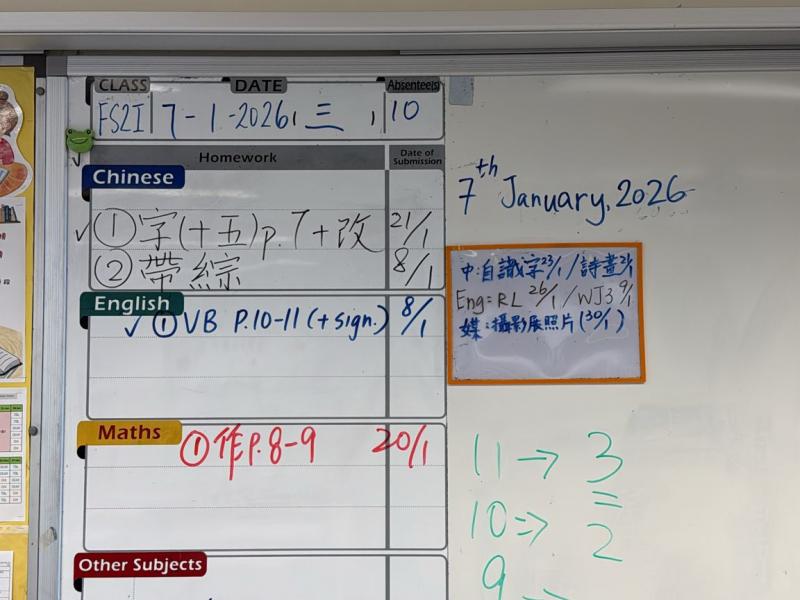 CLASS DATE Absentee(s)
FS2I 7-1-2026, 三, 10
Homework Date of Submission
Chinese
✓ ① 字(十五)p.7+改 21/1
② 帶綜 8/1
English
✓ ① VB P.10-11 (+sign.) 8/1
Maths
① 作P.8-9 20/1
Other Subjects
7th January, 2026
中:自識字23/1/詩畫21/1
Eng: RL 26/1 / WJ3 9/1
媒:攝影展照片(30/1)
11 → 3
10 => 2
9